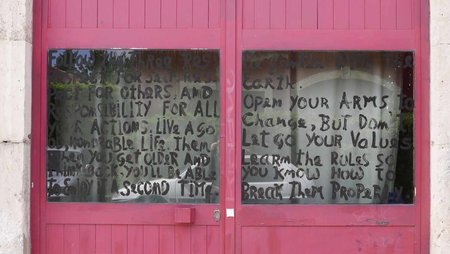 Follow the three Rs:
Respect for self, Res-
pect for others, and
Responsibility for all
your Actions. Live a go
od, honorable life. Then
when you get older and
think back, you'll be able
to enjoy it a second time.
earth.
Open your Arms to
Change, But Don
Let go your Values
Learn the Rules so
you Know How to
Break Them Properly